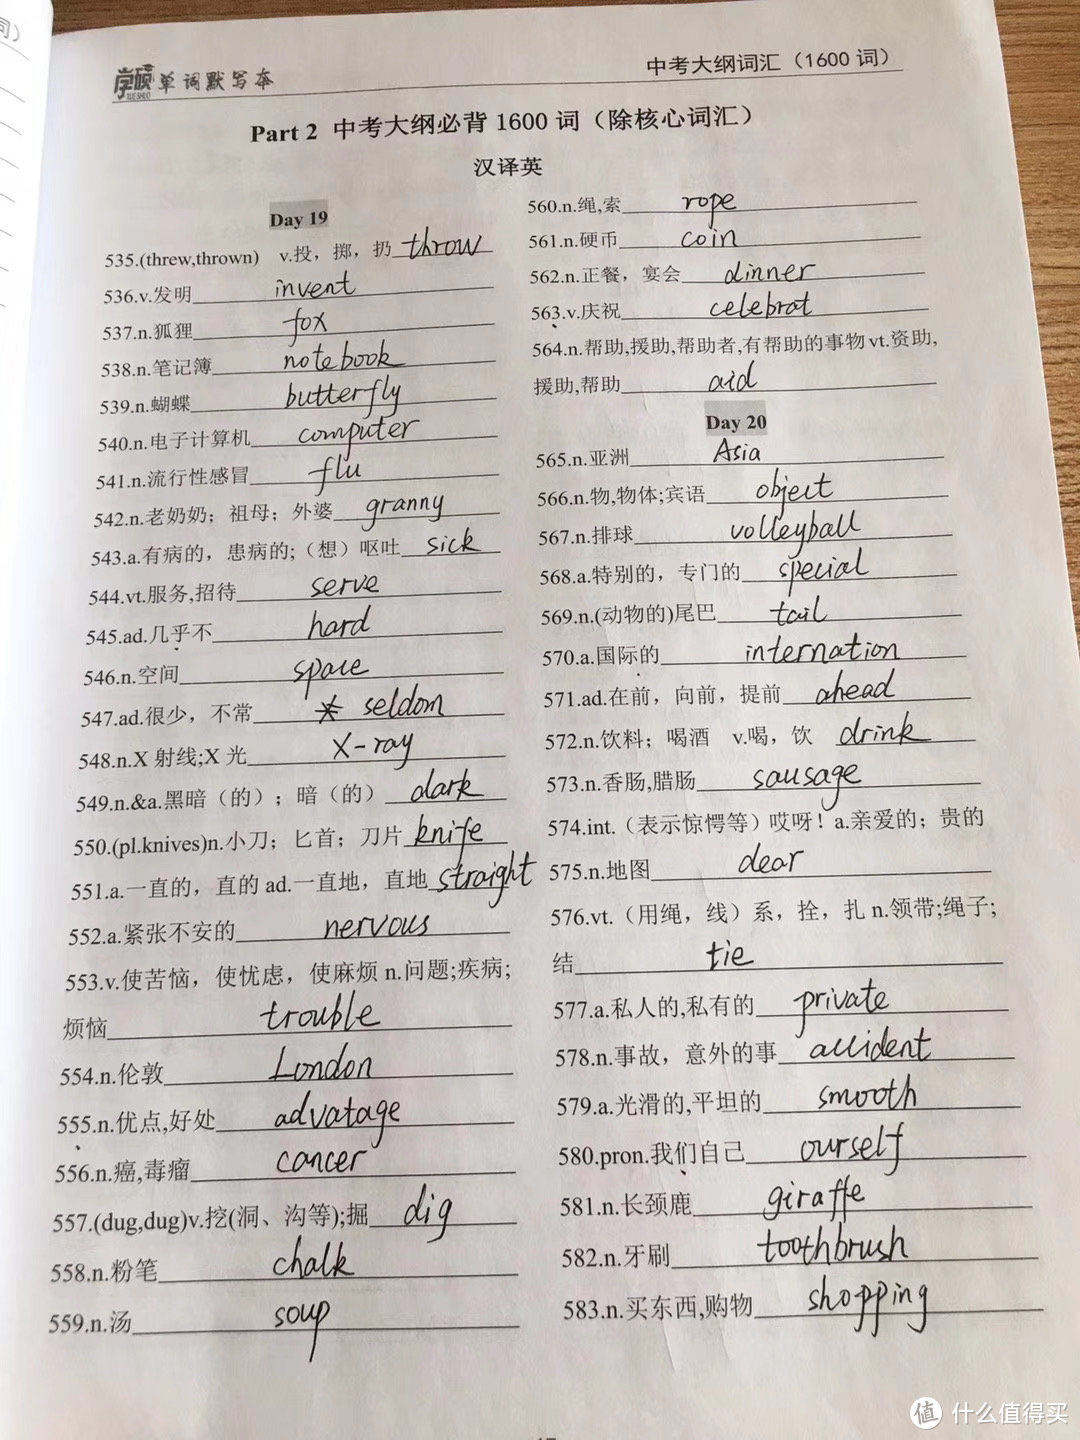 学硕 单词默写本
XUESHUO
中考大纲词汇（1600 词）
Part 2 中考大纲必背 1600 词（除核心词汇）
汉译英
Day 19
535.(threw,thrown) v.投，掷，扔 throw
536.v.发明 invent
537.n.狐狸 fox
538.n.笔记簿 notebook
539.n.蝴蝶 butterfly
540.n.电子计算机 computer
541.n.流行性感冒 flu
542.n.老奶奶；祖母；外婆 granny
543.a.有病的，患病的;（想）呕吐 sick
544.vt.服务,招待 serve
545.ad.几乎不 hard
546.n.空间 space
547.ad.很少，不常 seldom
548.n.X 射线;X 光 X-ray
549.n.&a.黑暗（的）；暗（的） dark
550.(pl.knives)n.小刀；匕首；刀片 knife
551.a.一直的，直的 ad.一直地，直地 straight
552.a.紧张不安的 nervous
553.v.使苦恼，使忧虑，使麻烦 n.问题;疾病;
烦恼 trouble
554.n.伦敦 London
555.n.优点,好处 advatage
556.n.癌,毒瘤 cancer
557.(dug,dug)v.挖(洞、沟等);掘 dig
558.n.粉笔 chalk
559.n.汤 soup
560.n.绳,索 rope
561.n.硬币 coin
562.n.正餐，宴会 dinner
563.v.庆祝 celebrat
564.n.帮助,援助,帮助者,有帮助的事物 vt.资助,
援助,帮助 aid
Day 20
565.n.亚洲 Asia
566.n.物,物体;宾语 object
567.n.排球 volleyball
568.a.特别的，专门的 special
569.n.(动物的)尾巴 tail
570.a.国际的 internation
571.ad.在前，向前，提前 ahead
572.n.饮料；喝酒 v.喝，饮 drink
573.n.香肠,腊肠 sausage
574.int.（表示惊愕等）哎呀！a.亲爱的；贵的
575.n.地图 dear
576.vt.（用绳，线）系，拴，扎 n.领带;绳子;
结 tie
577.a.私人的,私有的 private
578.n.事故，意外的事 accident
579.a.光滑的,平坦的 smooth
580.pron.我们自己 ourself
581.n.长颈鹿 giraffe
582.n.牙刷 toothbrush
583.n.买东西,购物 shopping
值 什么值得买